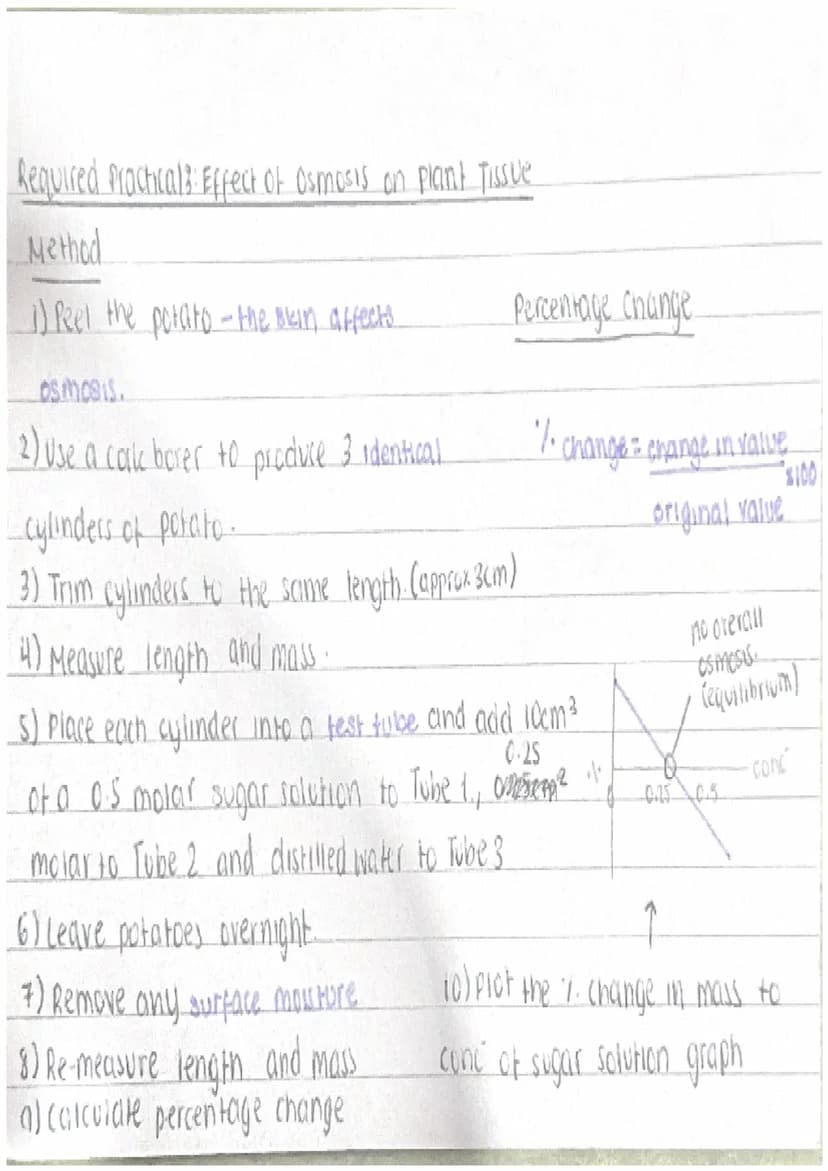 Required Practical 3: Effect of Osmosis on Plant Tissue
Method
1) Peel the potato - the skin affects
osmosis.
2) Use a cork borer to produce 3 identical
cylinders of potato.
3) Trim cylinders to the same length. (approx 3cm)
4) Measure length and mass.
5) Place each cylinder into a test tube and add 10cm³
of a 0.5 molar sugar solution to Tube 1, 0.25
molar to Tube 2 and distilled water to Tube 3
6) Leave potatoes overnight.
7) Remove any surface moisture
8) Re-measure length and mass
9) Calculate percentage change
Percentage Change
% change = change in value
x100
original value
no overall
osmosis.
(equilibrium)
%
0
0.25 0.5
conc
↑
10) Plot the % change in mass to
conc of sugar solution graph